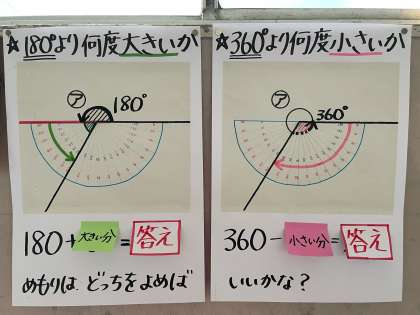 ★180°より何度大きいか
㋐
180°
180+大きい分=答え
めもりは、どっちをよめば
★360°より何度小さいか
㋐
360°
360-小さい分=答え
いいかな?